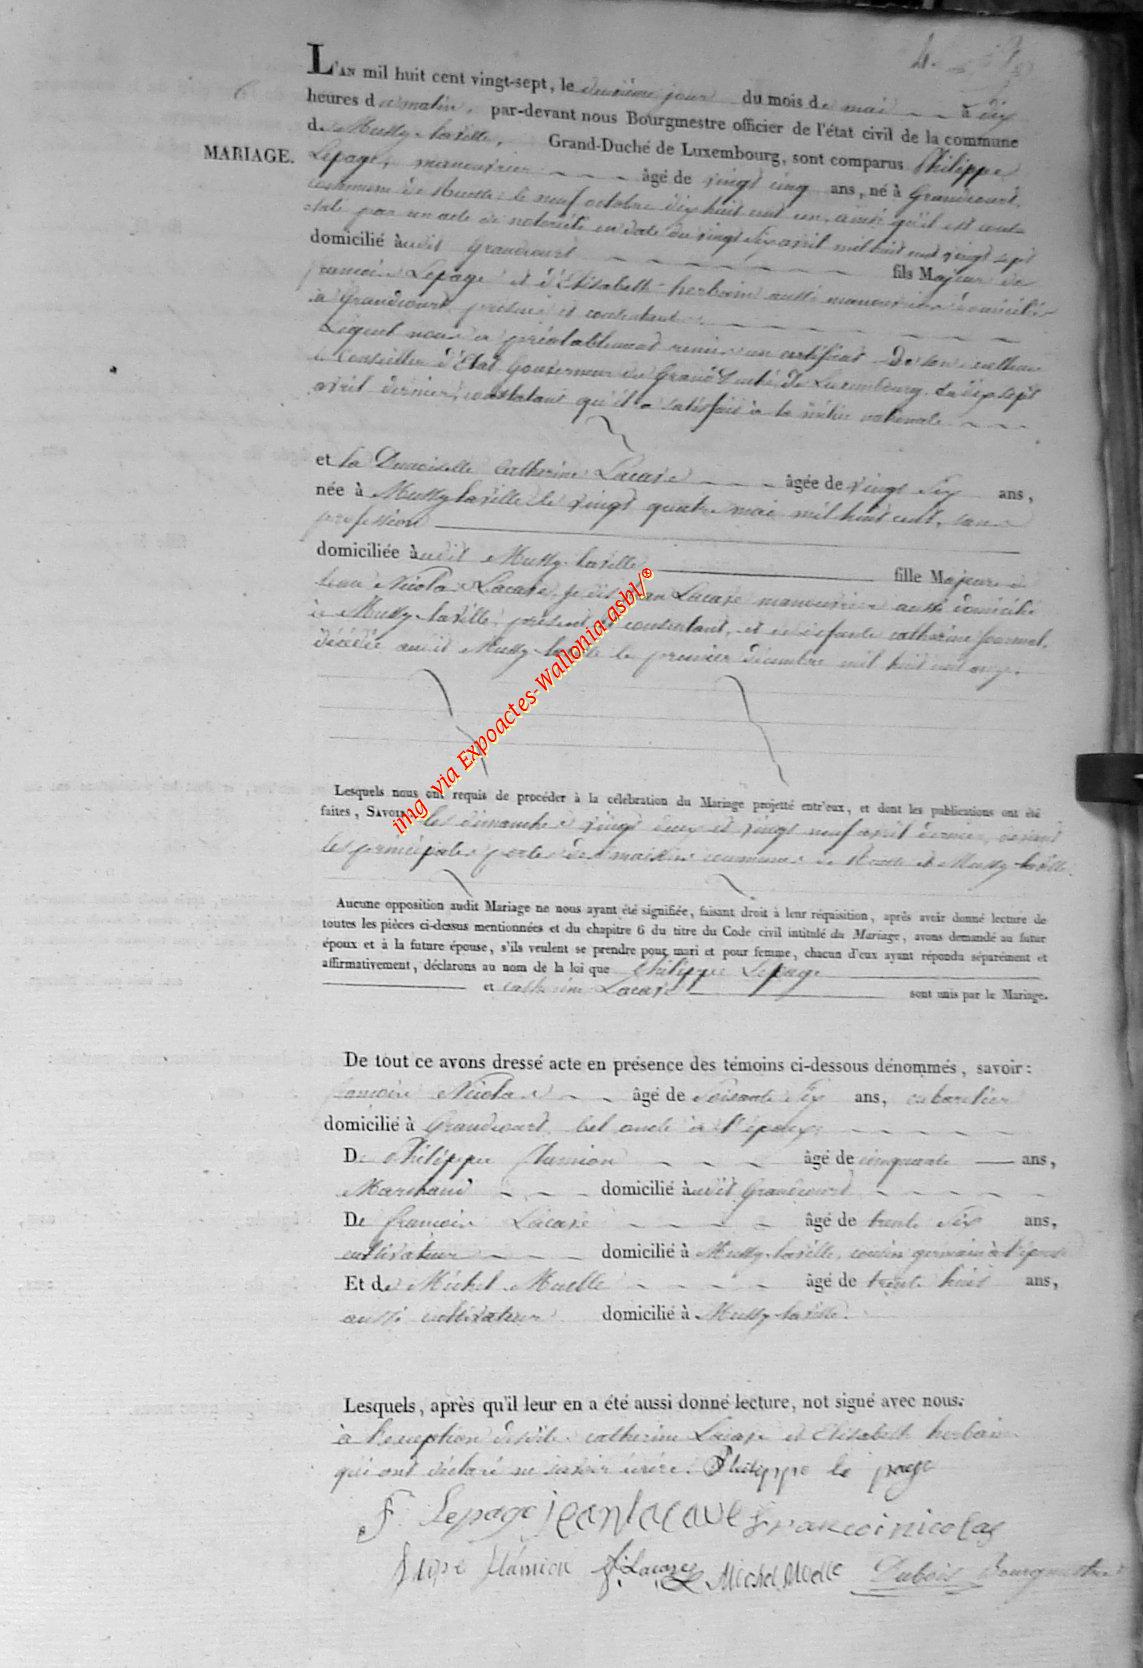 L'AN mil huit cent vingt-sept, le deuxième jour du mois de mai à dix
heures du matin, par-devant nous Bourgmestre officier de l'état civil de la commune
de Mussy-laville, Grand-Duché de Luxembourg, sont comparus Philippe
MARIAGE.
Lepage, manouvrier âgé de vingt cinq ans, né à Grandcourt,
commune de Ruette, le neuf octobre dix huit cent un, ainsi qu'il est cons-
taté par un acte de notoriété en date du vingt six avril mil huit cent vingt sept
domicilié audit Grandcourt fils Majeur de
francois Lepage et d'Elisabeth herbain aussi manouvriers domiciliés
à Grandcourt présens et consentans
Lequel nous a préalablement remis un certificat de son excellence
le Conseiller d'Etat Gouverneur du Grand Duché de Luxembourg, du dix sept
avril dernier, constatant qu'il a satisfait à la milice nationale
et la Demoiselle Catherine Lacave âgée de vingt six ans,
née à Mussy-laville le vingt quatre mai mil huit cent, sans
profession
domiciliée audit Mussy-laville fille Majeure de
Jean Nicolas Lacave, dit Jean Lacave manouvrier aussi domicilié
à Mussy-laville, présent et consentant, et de défunte catherine
décédée audit Mussy-laville le premier décembre mil huit cent onze.
Lesquels nous ont requis de procéder à la célébration du Mariage projetté entr'eux, et dont les publications ont été
faites, SAVOIR: les dimanches vingt deux et vingt neuf avril dernier, devant
les principales portes des maisons communes de Ruette et Mussy-laville.
Aucune opposition audit Mariage ne nous ayant été signifiée, faisant droit à leur réquisition, après avoir donné lecture de
toutes les pièces ci-dessus mentionnées et du chapitre 6 du titre du Code civil intitulé du Mariage, avons demandé au futur
époux et à la future épouse, s'ils veulent se prendre pour mari et pour femme, chacun d'eux ayant répondu séparément et
affirmativement, déclarons au nom de la loi que Philippe Lepage
et catherine Lacave sont unis par le Mariage.
De tout ce avons dressé acte en présence des témoins ci-dessous dénommés, savoir:
francois Nicolas âgé de soixante six ans, cabaretier
domicilié à Grandcourt, bel oncle à l'époux;
De Philippe Flamion âgé de cinquante ans,
Marchand domicilié audit Grandcourt
De francois Lacave âgé de trente six ans,
cultivateur domicilié à Mussy-laville, cousin germain à l'épouse
Et de Michel Muelle âgé de trente huit ans,
aussi cultivateur domicilié à Mussy-laville.
Lesquels, après qu'il leur en a été aussi donné lecture, ont signé avec nous.
à l'exception desdites catherine Lacave et Elisabeth herbain
qui ont déclaré ne savoir écrire. Philippe le page
F. Lepage jean lacave francoi nicolas
flámion f. Lacave Michel Muelle Dubois Bourgmestre
img via Expoactes-Wallonia asbl/©